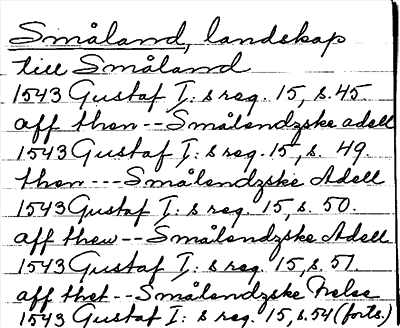 Småland, landskap
till Småland
1543 Gustaf I: s reg. 15, s. 45.
aff then -- Smålendzske adell
1543 Gustaf I: s reg. 15, s. 49.
then --- Smålendzske Adell
1543 Gustaf I: s reg. 15, s. 50.
aff thew -- Smålendzske Adell
1543 Gustaf I: s reg. 15, s. 51.
aff thet -- Smålendzske
1543 Gustaf I: s reg. 15, s. 54 (forts.)